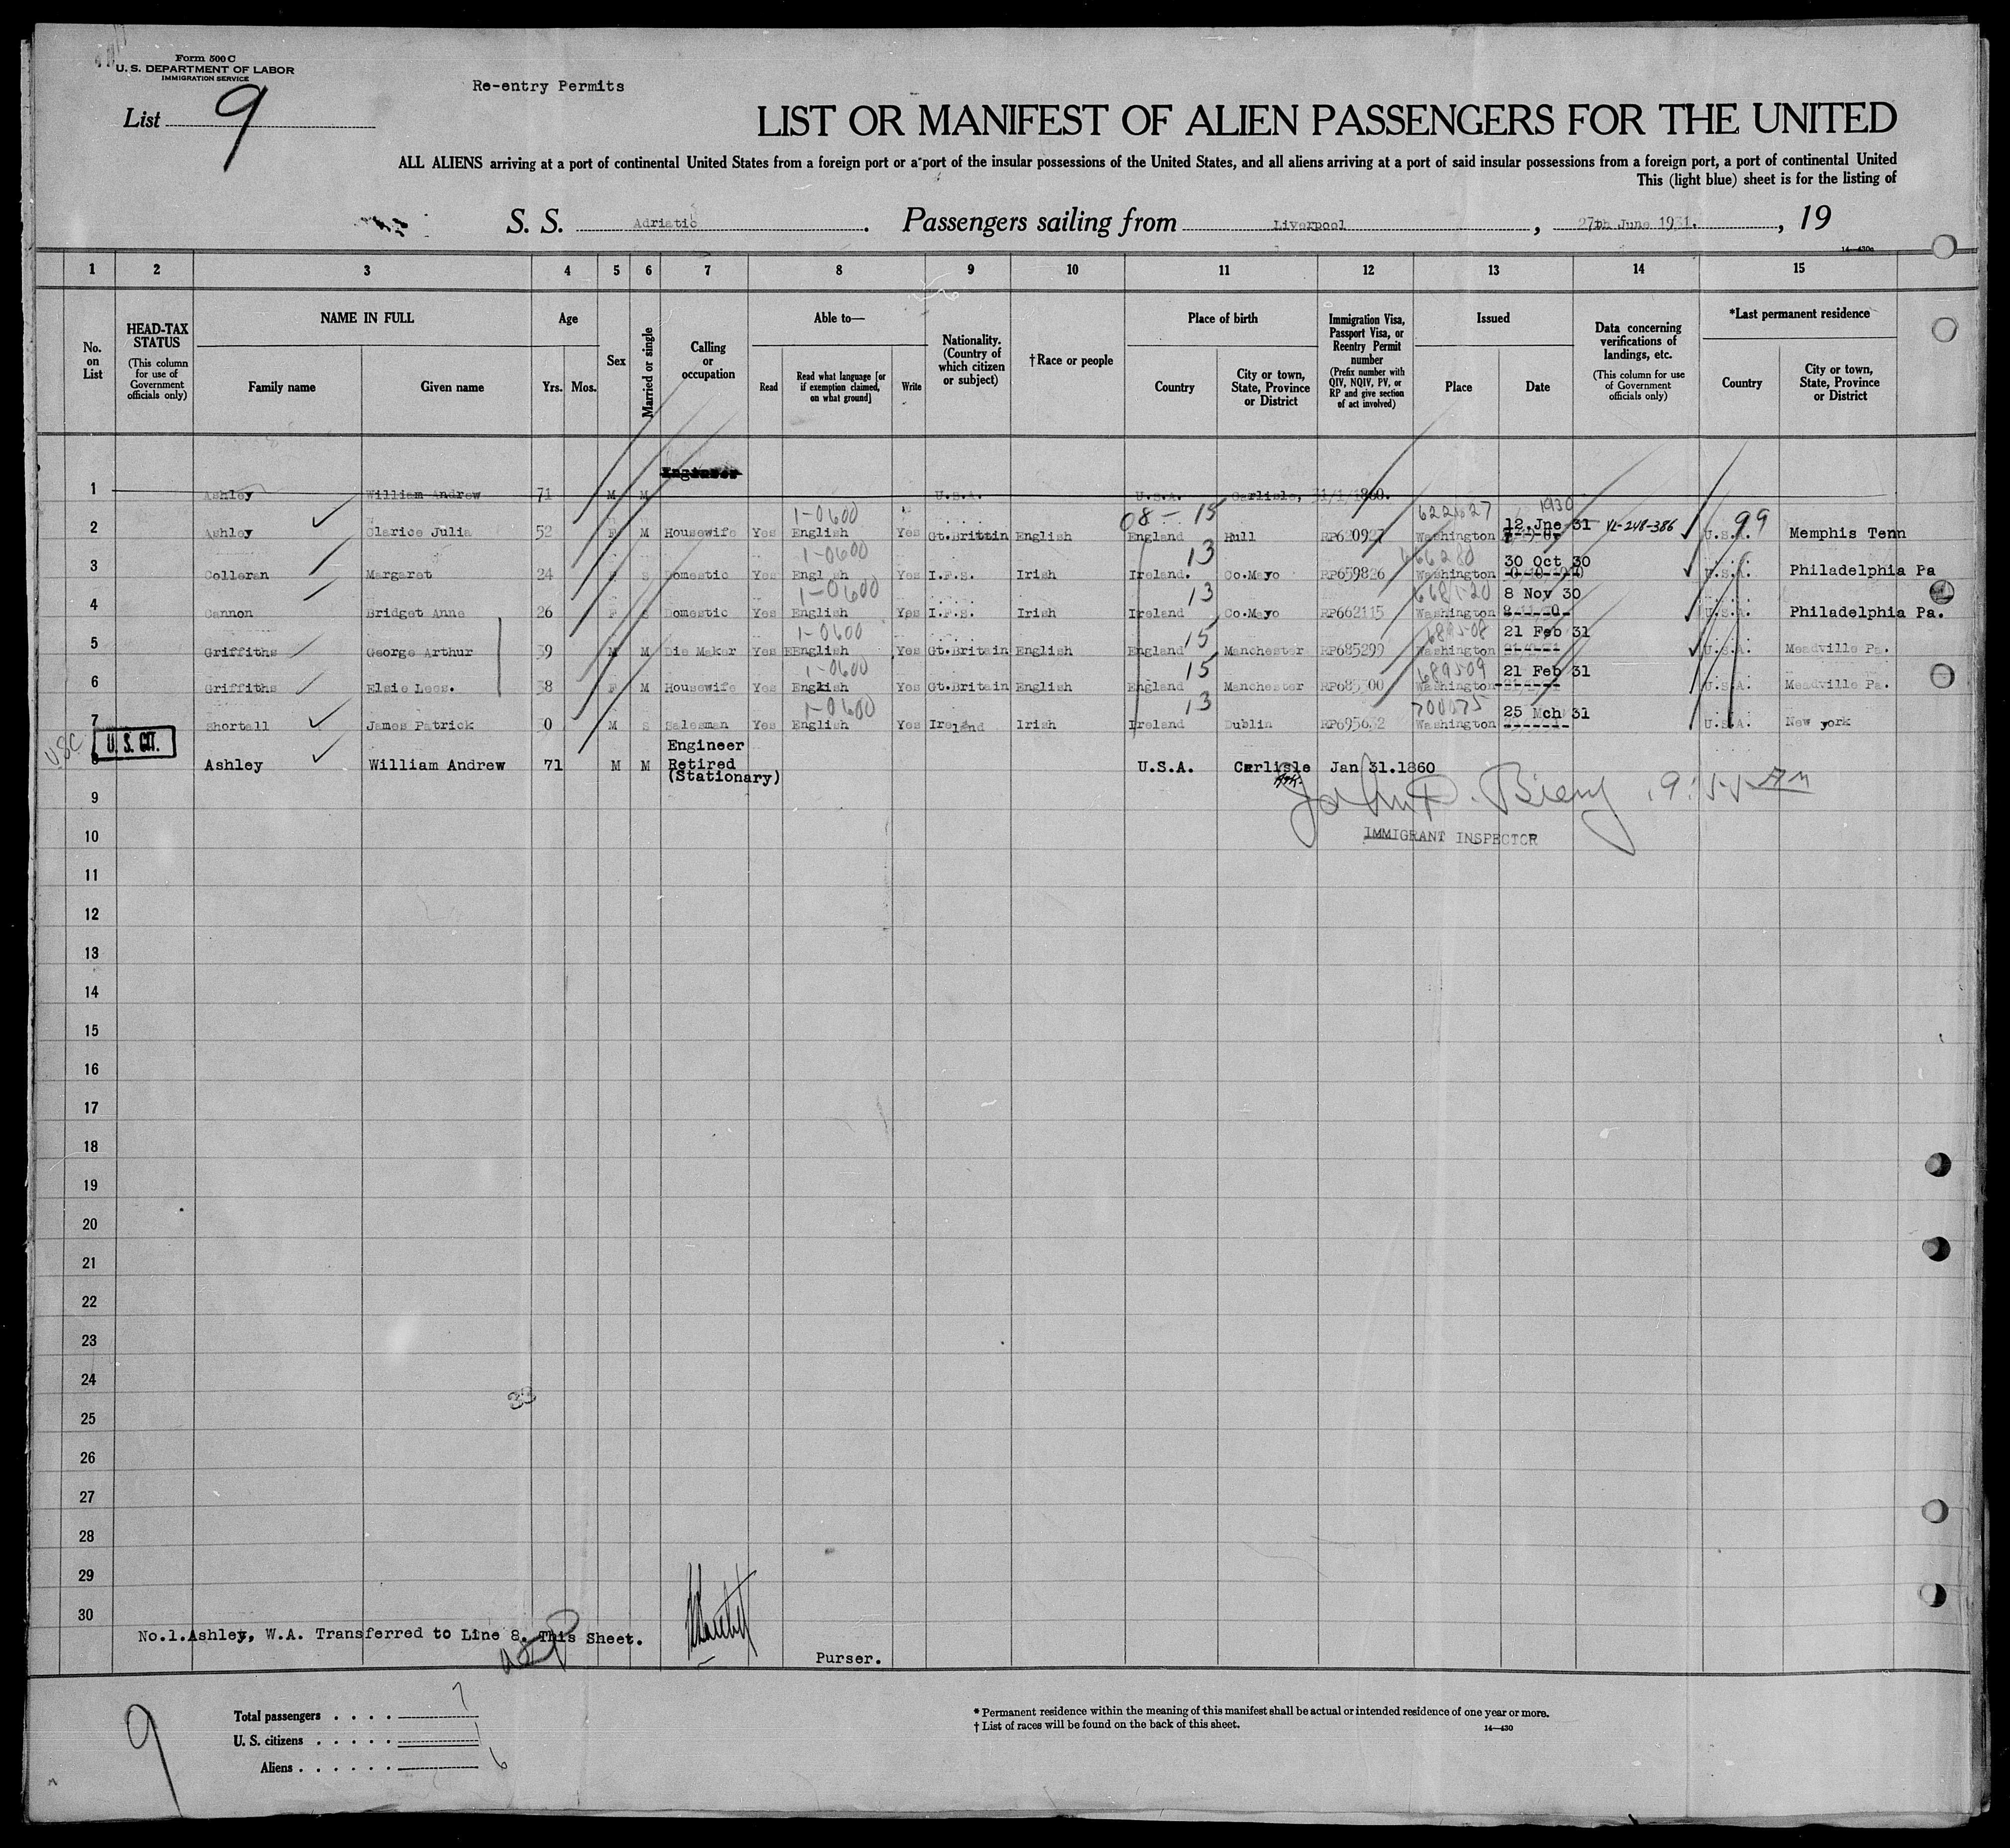 Form 500 C
U. S. DEPARTMENT OF LABOR
IMMIGRATION SERVICE
Re-entry Permits
List 9
LIST OR MANIFEST OF ALIEN PASSENGERS FOR THE UNITED
ALL ALIENS arriving at a port of continental United States from a foreign port or a port of the insular possessions of the United States, and all aliens arriving at a port of said insular possessions from a foreign port, a port of continental United
This (light blue) sheet is for the listing of
S. S. Adriatic. Passengers sailing from Liverpool, 27th June 1931., 19
14—430a
1 2 3 4 5 6 7 8 9 10 11 12 13 14 15
No. on List
HEAD-TAX STATUS (This column for use of Government officials only)
NAME IN FULL Family name Given name
Age Yrs. Mos.
Sex
Married or single
Calling or occupation
Able to— Read Read what language [or if exemption claimed, on what ground] Write
Nationality. (Country of which citizen or subject)
†Race or people
Place of birth Country City or town, State, Province or District
Immigration Visa, Passport Visa, or Reentry Permit number (Prefix number with QIV, NQIV, PV, or RP and give section of act involved)
Issued Place Date
Data concerning verifications of landings, etc. (This column for use of Government officials only)
*Last permanent residence Country City or town, State, Province or District
Engineer
1 Ashley William Andrew 71 M M U.S.A. U.S.A. Carlisle, 31/1/1860.
1-0600 08-15 622627 1930
2 Ashley Clarice Julia 52 F M Housewife Yes English Yes Gt.Brittin English England Hull RP620927 Washington 12 Jne 31 VL-248-386 U.S.A. 99 Memphis Tenn
1-0600 13 666280
3 Colleran Margaret 24 F S Domestic Yes English Yes I.F.S. Irish Ireland. Co.Mayo RP659826 Washington 30 Oct 30 U.S.A. Philadelphia Pa
1-0600 13
4 Cannon Bridget Anne 26 F S Domestic Yes English Yes I.F.S. Irish Ireland Co.Mayo RP662115 Washington 8 Nov 30 U.S.A. Philadelphia Pa.
1-0600 15 689508
5 Griffiths George Arthur 39 M M Die Maker Yes EEnglish Yes Gt.Britain English England Manchester RP685299 Washington 21 Feb 31 U.S.A. Meadville Pa.
1-0600 15 689509
6 Griffiths Elsie Lees. 38 F M Housewife Yes English Yes Gt.Britain English England Manchester RP685300 Washington 21 Feb 31 U.S.A. Meadville Pa.
1-0600 13 700075
7 Shortall James Patrick M S Salesman Yes English Yes Ireland Irish Ireland Dublin RP695632 Washington 25 Mch 31 U.S.A. New york
USC U. S. CIT.
8 Ashley William Andrew 71 M M Engineer Retired (Stationary) U.S.A. Carlisle Jan 31.1860
John P. Bieny 9:55 AM
9
IMMIGRANT INSPECTOR
10
11
12
13
14
15
16
17
18
19
20
21
22
23
24
33
25
26
27
28
29
30
No.1.Ashley, W.A. Transferred to Line 8. This Sheet.
Purser.
9
Total passengers . . . . 7
U. S. citizens . . . . . 1
Aliens . . . . . . 6
* Permanent residence within the meaning of this manifest shall be actual or intended residence of one year or more.
† List of races will be found on the back of this sheet.
14—430